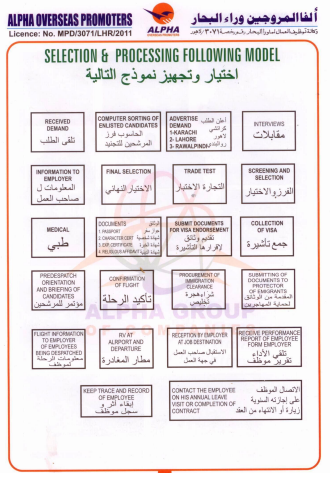 ALPHA OVERSEAS PROMOTERS
Licence: No. MPD/3071/LHR/2011
ALPHA
ألفا المروجين وراء البحار
SELECTION & PROCESSING FOLLOWING MODEL
اختيار وتجهيز نموذج التالية
RECEIVED
DEMAND
تلقى الطلب
COMPUTER SORTING OF
ENLISTED CANDIDATES
الحاسوب فرز
المرشحين للتجنيد
ADVERTISE
DEMAND
1-KARACHI
2- LAHORE
3- RAWALPINDI
أعلن الطلب
كراتشي
لاهور
INTERVIEWS
مقابلات
INFORMATION TO
EMPLOYER
المعلومات ل
صاحب العمل
FINAL SELECTION
الاختيار النهائي
TRADE TEST
التجارة الاختبار
SCREENING AND
SELECTION
الفرز والاختيار
MEDICAL
طبي
DOCUMENTS
1. PASSPORT
2. CHARACTER CERT
3. EXP. CERTIFICATE
4. RELIGIOUS AFFIDAVIT
SUBMIT DOCUMENTS
FOR VISA ENDORSEMENT
تقديم وثائق
لإقرارها التأشيرة
COLLECTION
OF VISA
جمع تأشيرة
PREDESPATCH
ORIENTATION AND
BRIEFING OF
CANDIDATES
مؤتمر للمرشحين
CONFIRMATION
OF FLIGHT
تأكيد الرحلة
PROCUREMENT OF
IMMIGRATION
CLEARANCE
شراء هجرة
تخليص
SUBMITTING OF
DOCUMENTS TO
PROTECTOR
OF EMIGRANTS
المقدمة من الوثائق
لحماية المهاجرين
ALPHA GROUP
OF COMPANIES
FLIGHT INFORMATION
TO EMPLOYER
OF EMPLOYEES
BEING DESPATCHED
معلومات الرحلة
للموظف
RV AT
AIRPORT AND
DEPARTURE
مطار المغادرة
RECEPTION BY EMPLOYER
AT JOB DESTINATION
الاستقبال صاحب العمل
في جهة العمل
RECEIVE PERFORMANCE
REPORT OF EMPLOYEE
FORM EMPLOYER
تلقي الأداء
تقرير موظف
KEEP TRACE AND RECORD
OF EMPLOYEE
إبقاء أثر و
سجل موظف
CONTACT THE EMPLOYEE
ON HIS ANNUAL LEAVE
VISIT OR COMPLETION OF
CONTRACT
الاتصال الموظف
على إجازته السنوية
زيارة أو الانتهاء من العقد